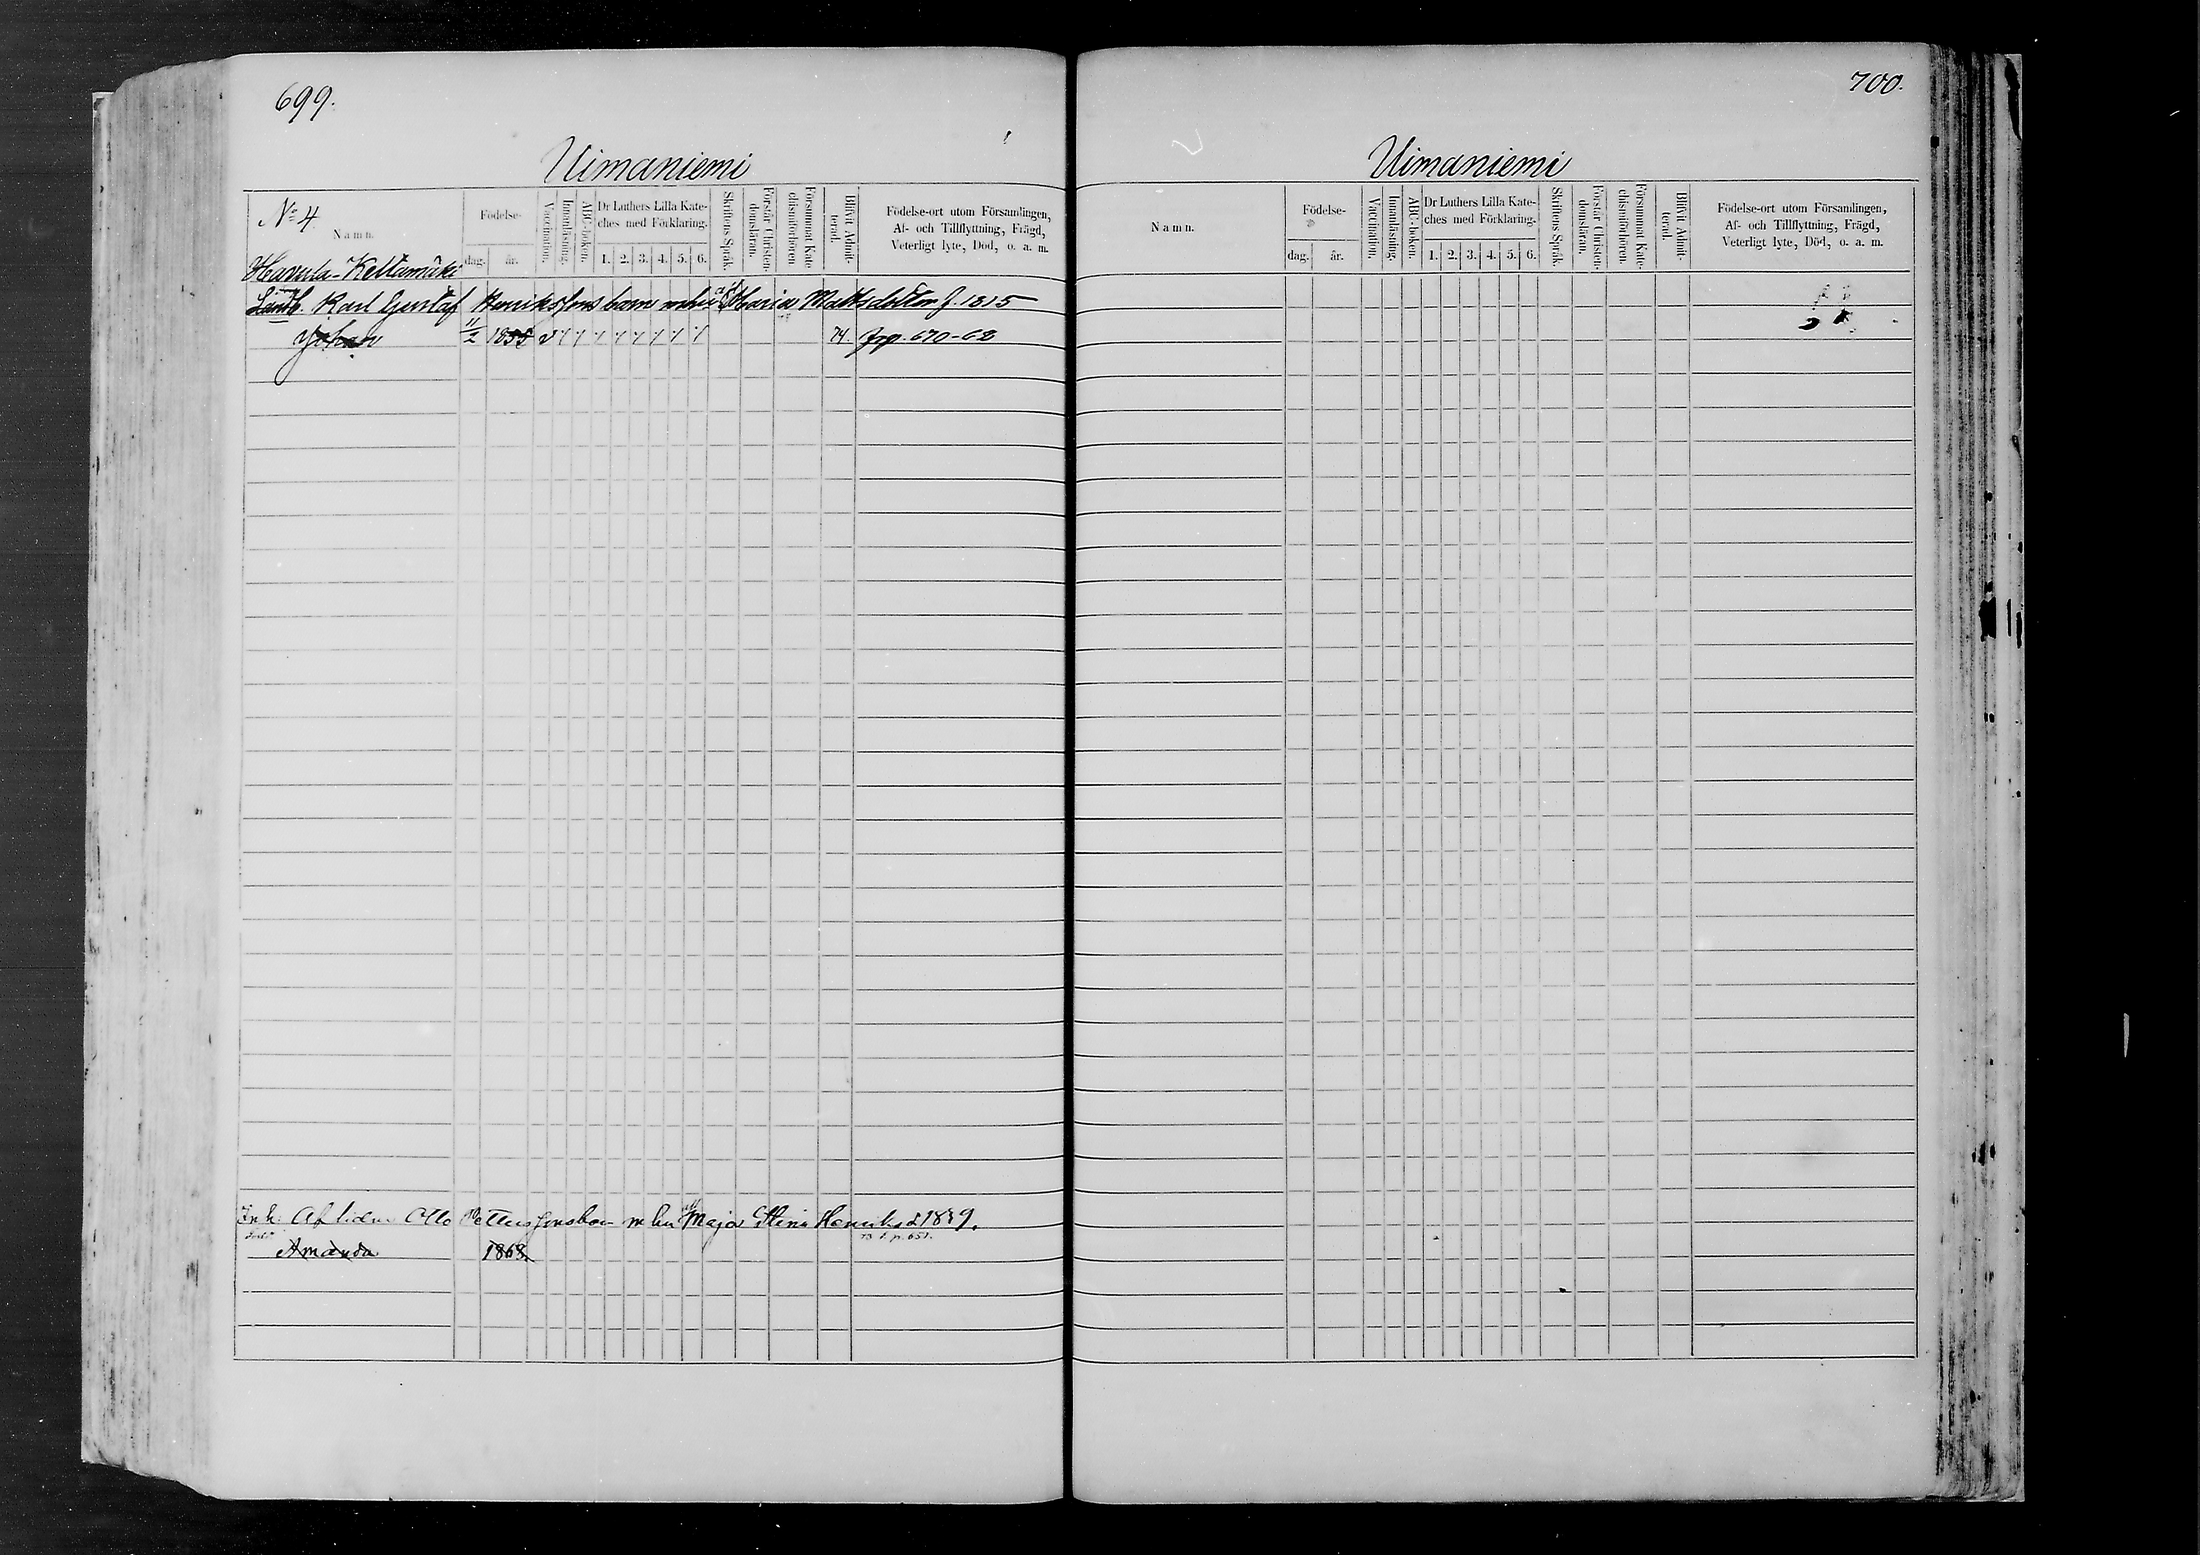 699.
Uimaniemi
No 4.
Namn.
Födelse-
dag.
år.
Vaccination.
Innanläsning.
ABC-boken.
Dr Luthers Lilla Kate-
ches med Förklaring.
1. 2. 3. 4. 5. 6.
Skriftens Språk.
Förstår Christen-
domsläran.
Försummat Kate-
chismiförhören.
Blifvit Admit-
terad.
Födelse-ort utom Församlingen,
Af- och Tillflyttning, Frägd,
Veterligt lyte, Död, o. a. m.
Kellamäki
Karl Gustaf Henrikssons barn Maria Mattsdotter f. 1815
Johan 11/2 74. 670-68
Aflidne Otto Pettersson m hu Maja Stina Henriksd 1839.
Amanda 1868.
700.
Uimaniemi
Namn.
Födelse-
dag.
år.
Vaccination.
Innanläsning.
ABC-boken.
Dr Luthers Lilla Kate-
ches med Förklaring.
1. 2. 3. 4. 5. 6.
Skriftens Språk.
Förstår Christen-
domsläran.
Försummat Kate-
chismiförhören.
Blifvit Admit-
terad.
Födelse-ort utom Församlingen,
Af- och Tillflyttning, Frägd,
Veterligt lyte, Död, o. a. m.